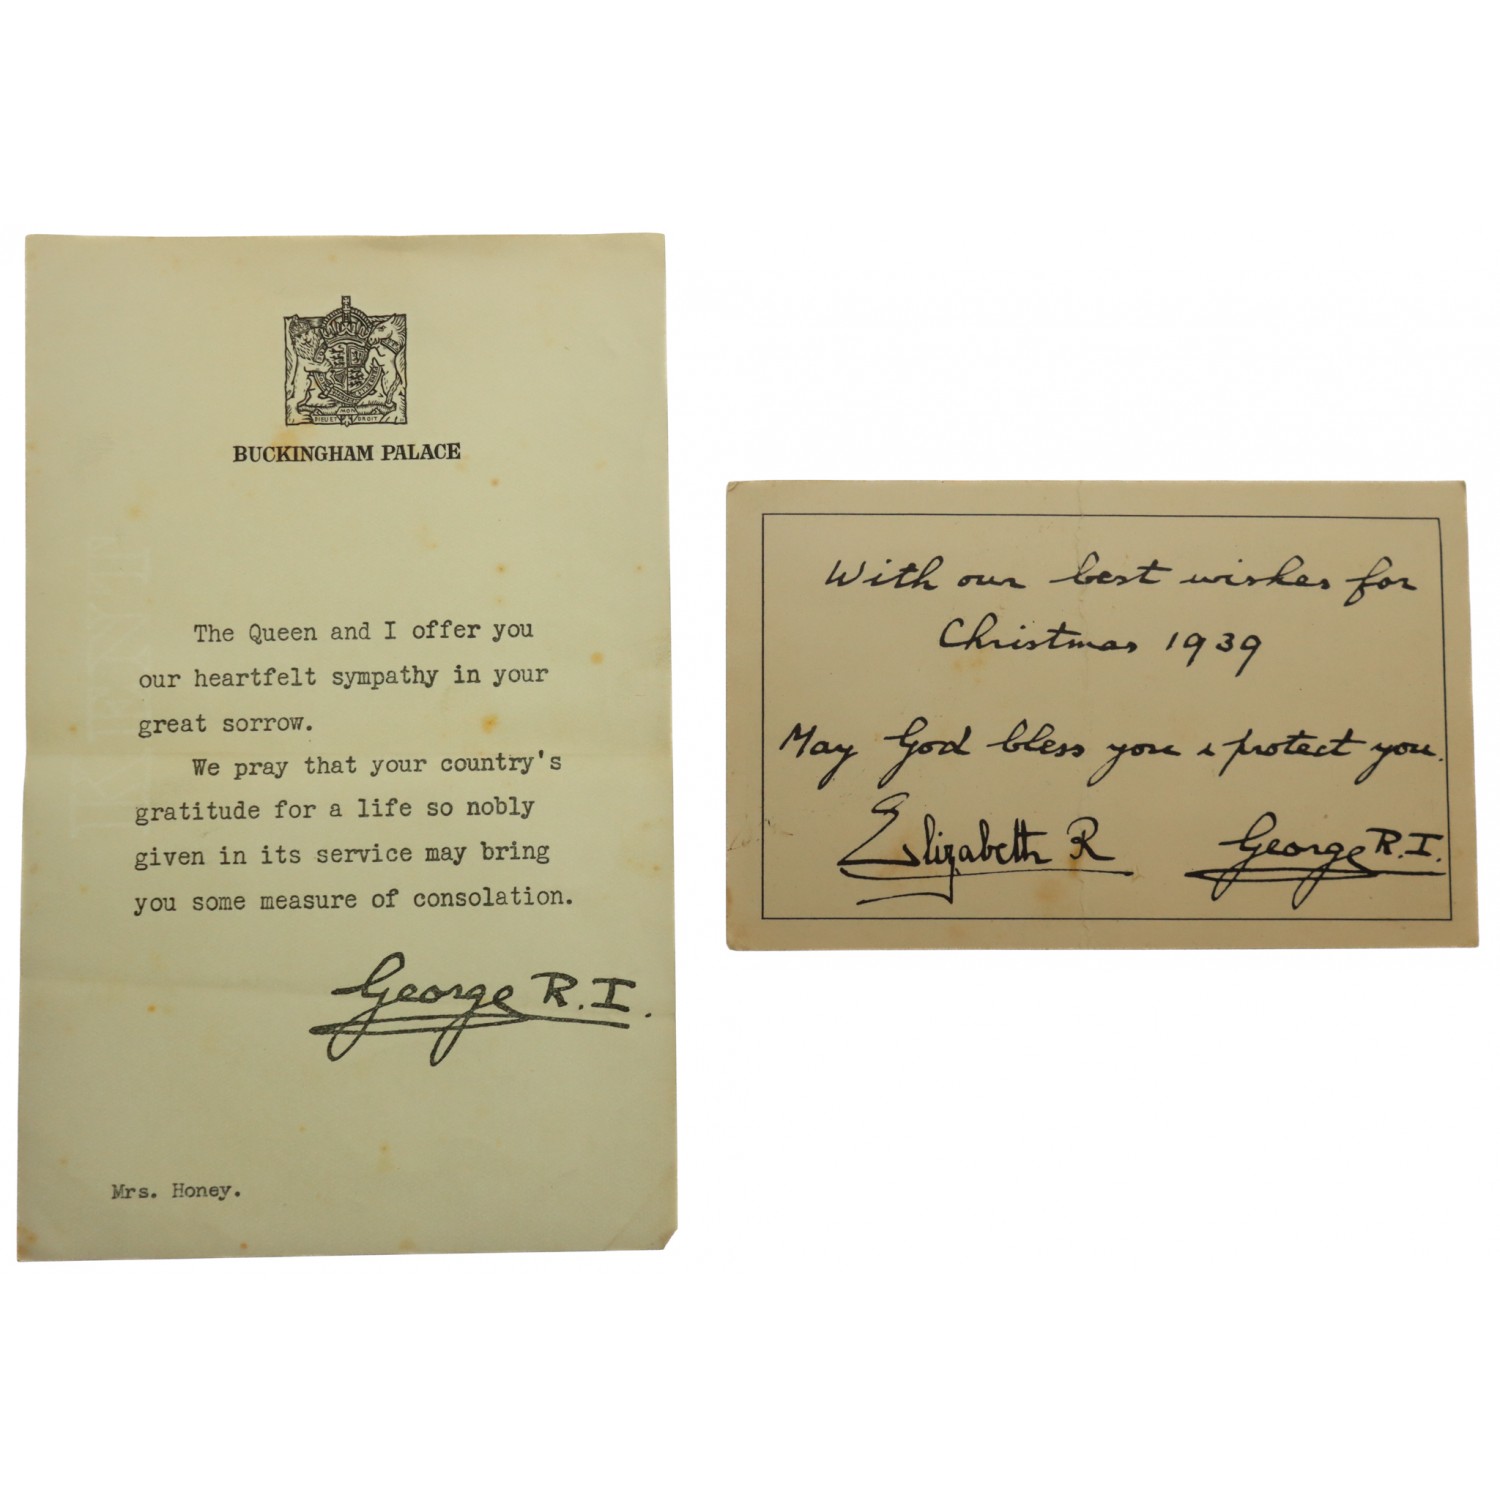 DIEU ET MON DROIT
BUCKINGHAM PALACE
The Queen and I offer you
our heartfelt sympathy in your
great sorrow.
We pray that your country's
gratitude for a life so nobly
given in its service may bring
you some measure of consolation.
George R.I.
Mrs. Honey.
With our best wishes for
Christmas 1939
May God bless you & protect you.
Elizabeth R
George R.I.